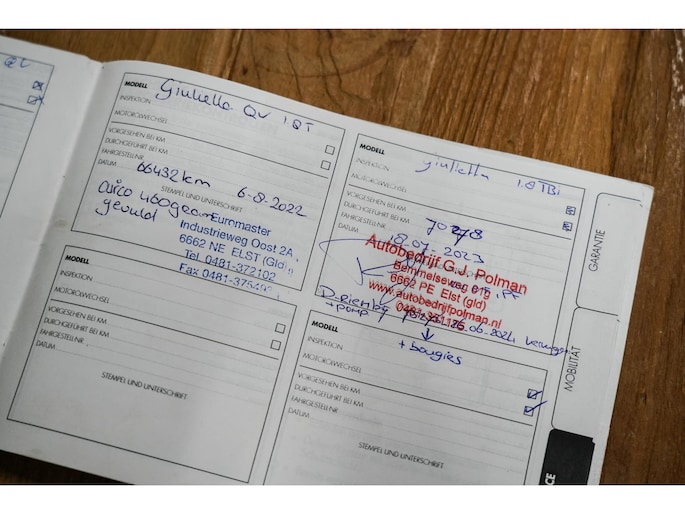 MODELL Giulietta QV 1.8T
INSPEKTION
MOTORÖLWECHSEL
VORGESEHEN BEI KM
DURCHGEFÜHRT BEI KM
FAHRGESTELL-NR. 66432 km
DATUM 6-8-2022
STEMPEL UND UNTERSCHRIFT
airco 460gram
gevuld
Euromaster
Industrieweg Oost 2A
6662 NE ELST (Gld)
Tel 0481-372102
Fax 0481-375492
MODELL
INSPEKTION
MOTORÖLWECHSEL
VORGESEHEN BEI KM
DURCHGEFÜHRT BEI KM
FAHRGESTELL-NR.
DATUM
STEMPEL UND UNTERSCHRIFT
MODELL giulietta 1.8 TBi
INSPEKTION
MOTORÖLWECHSEL
VORGESEHEN BEI KM
DURCHGEFÜHRT BEI KM 70278
FAHRGESTELL-NR.
DATUM 18.07-2023
Autobedrijf G.J. Polman
Bemmelseweg 81g
6662 PE Elst (gld)
www.autobedrijfpolman.nl
D-riem
+ pomp 26.06-2024
+ bougies
MODELL
INSPEKTION
MOTORÖLWECHSEL
VORGESEHEN BEI KM
DURCHGEFÜHRT BEI KM
FAHRGESTELL-NR.
DATUM
STEMPEL UND UNTERSCHRIFT
GARANTIE
MOBILITÄT